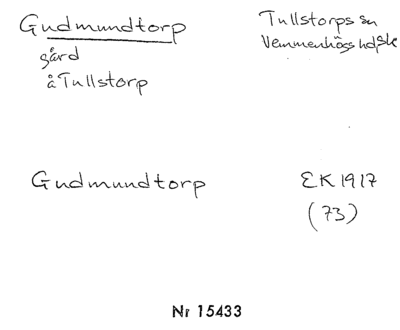 Gudmundtorp
gård
å Tullstorp
Tullstorps sn
Vemmenhögs hd, Sk
Gudmundtorp
EK 1917
(73)
Nr 15433